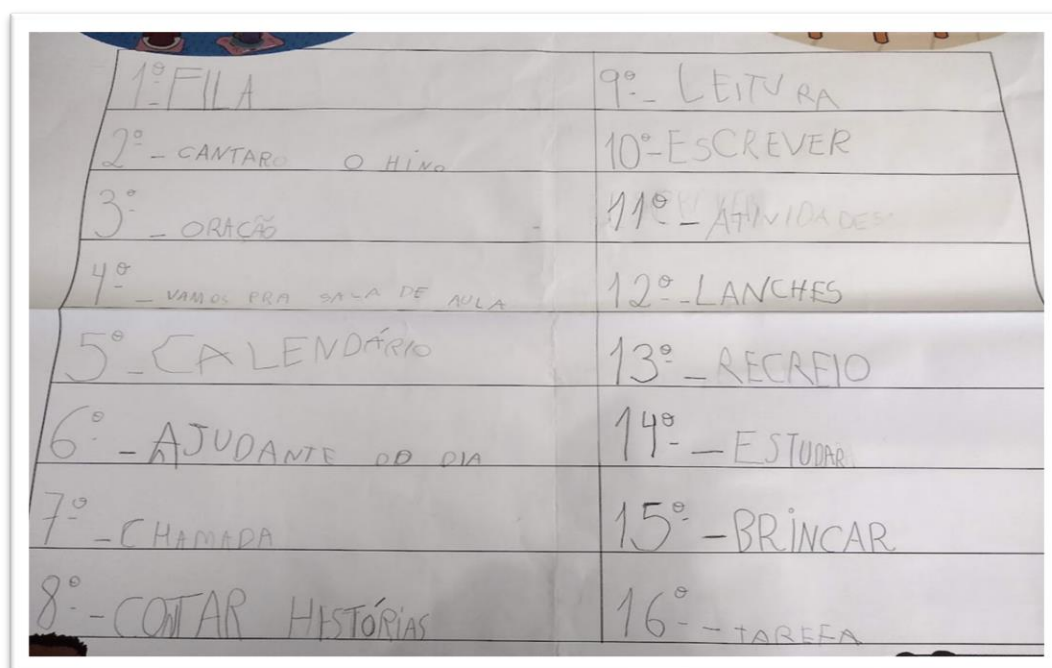 1º FILA
2º - CANTAR O HINO
3º - ORAÇÃO
4º - VAMOS PRA SALA DE AULA
5º - CALENDÁRIO
6º - AJUDANTE DO DIA
7º - CHAMADA
8º - CONTAR HISTÓRIAS
9º - LEITURA
10º - ESCREVER
11º - ATIVIDADES
12º - LANCHES
13º - RECREIO
14º - ESTUDAR
15º - BRINCAR
16º - TAREFA